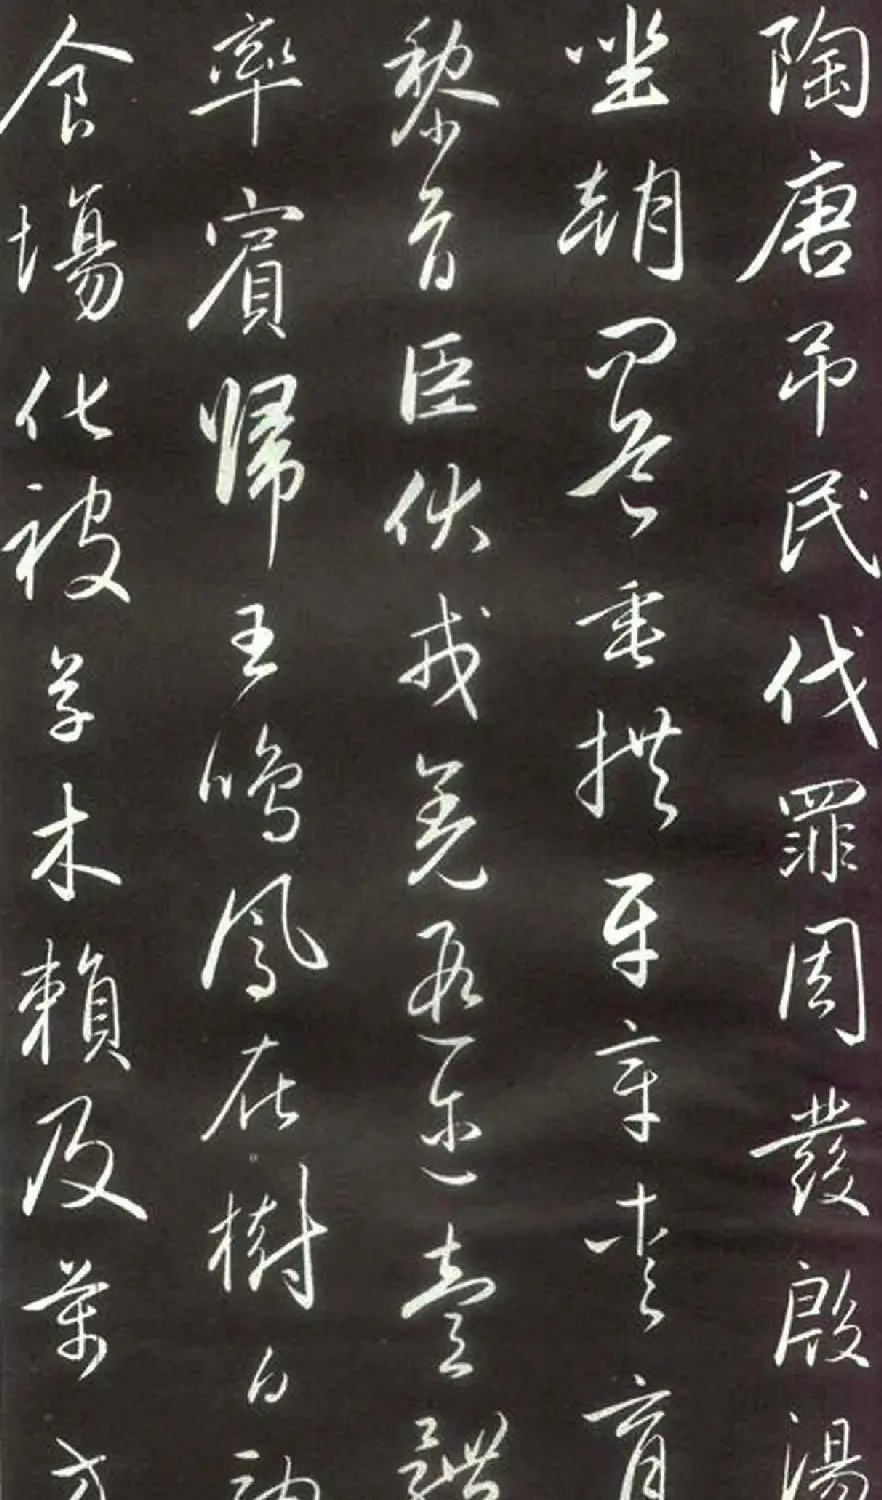 陶唐吊民伐罪周發殷湯
坐朝問道垂拱平章愛育
黎首臣伏戎羌遐邇壹體
率賓歸王鳴鳳在樹白駒
食場化被草木賴及萬方